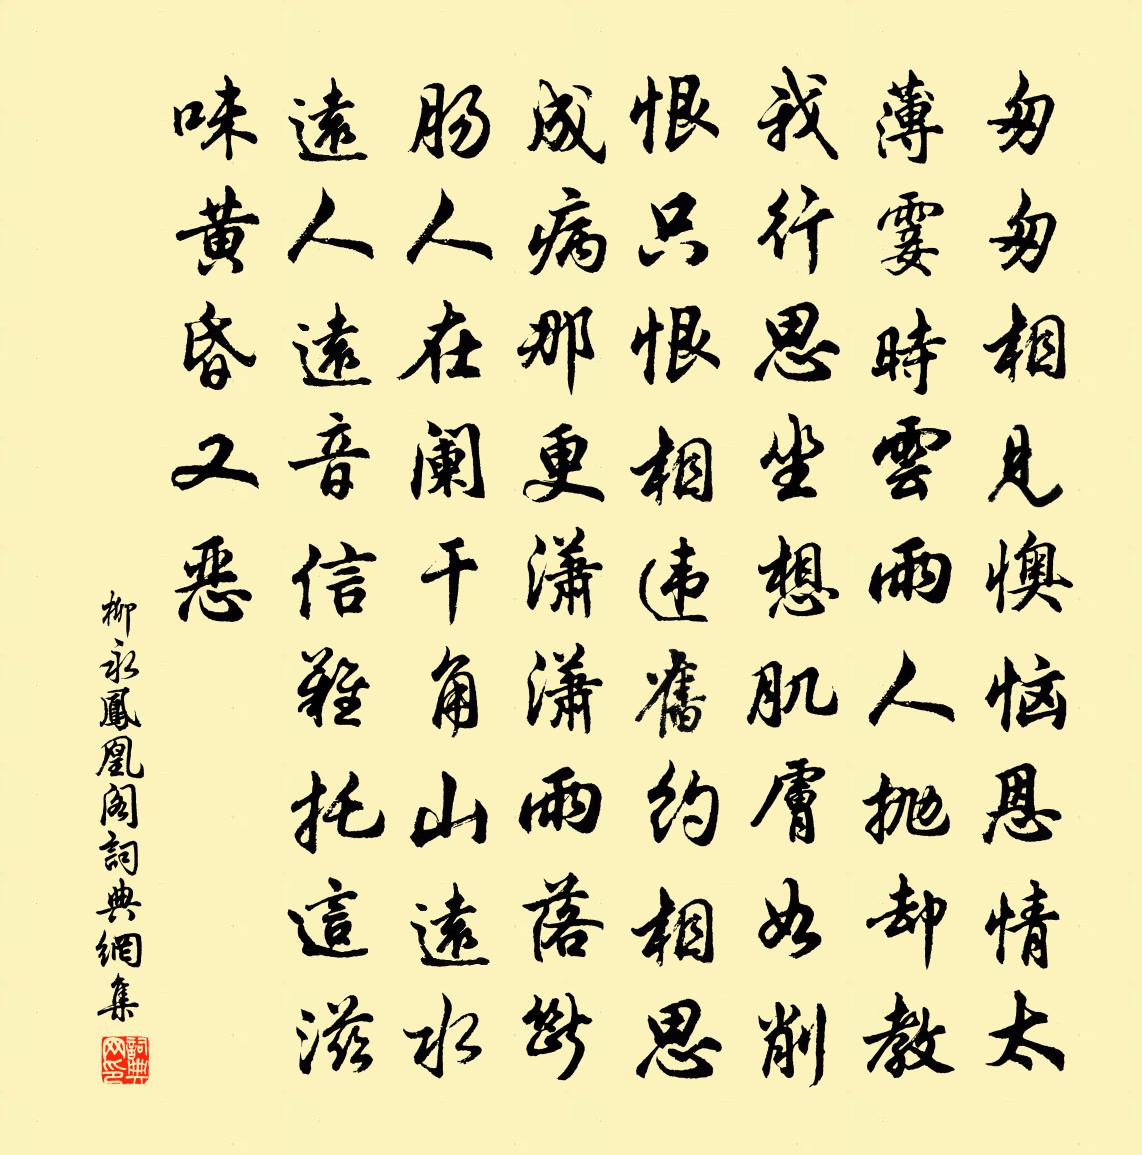 匆匆相見懊恼恩情太
薄霎時雲雨人抛却教
我行思坐想肌膚如削
恨只恨相违舊约相思
成病那更潇潇雨落斷
肠人在阑干角山遠水
遠人遠音信難托這滋
味黄昏又惡
柳永鳳凰阁詞典網集
詞典网印